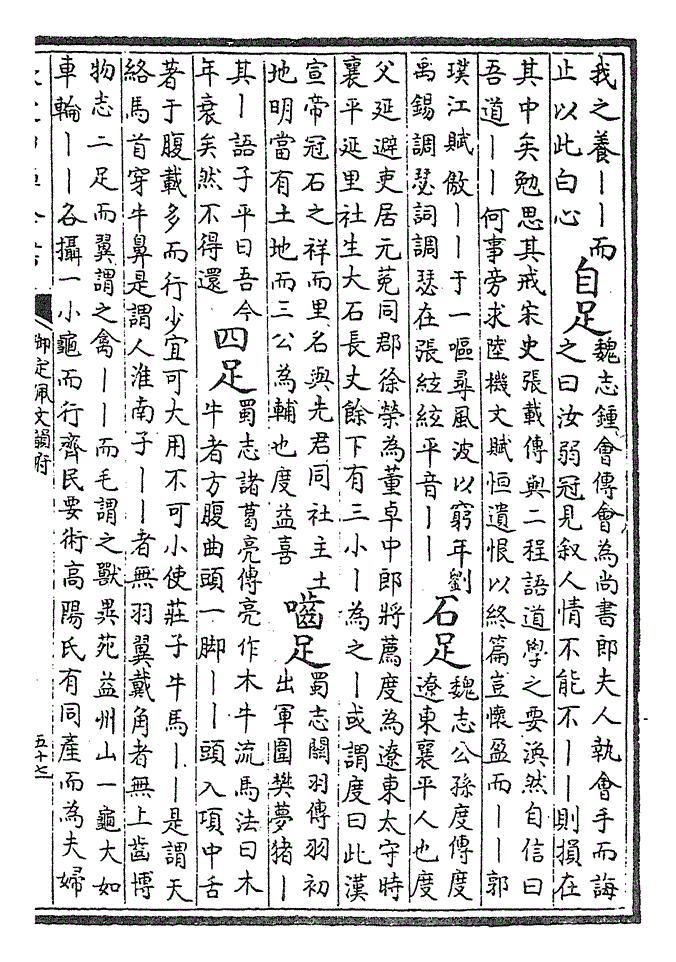 我之養丨丨而
止以此白心
自足
魏志鍾會傳會為尚書郎夫人執會手而誨
之曰汝弱冠見叙人情不能不丨丨則損在
其中矣勉思其戒宋史張載傳與二程語道學之要渙然自信曰
吾道丨丨何事旁求陸機文賦恒遺恨以終篇豈懷盈而丨丨郭
璞江賦傲丨丨于一嘔尋風波以窮年劉
禹錫調瑟詞調瑟在張絃絃平音丨丨
石足
魏志公孫度傳度
遼東襄平人也度
父延避吏居元菟同郡徐榮為董卓中郎將薦度為遼東太守時
襄平延里社生大石長丈餘下有三小丨為之丨或謂度曰此漢
宣帝冠石之祥而里名與先君同社主土
地明當有土地而三公為輔也度益喜
齧足
蜀志關羽傳羽初
出軍圍樊夢猪丨
其丨語子平曰吾今
年衰矣然不得還
四足
蜀志諸葛亮傳亮作木牛流馬法曰木
牛者方腹曲頭一脚丨丨頭入項中舌
著于腹載多而行少宜可大用不可小使莊子牛馬丨丨是謂天
絡馬首穿牛鼻是謂人淮南子丨丨者無羽翼戴角者無上齒博
物志二足而翼謂之禽丨丨而毛謂之獸異苑益州山一龜大如
車輪丨丨各攝一小龜而行齊民要術高陽氏有同產而為夫婦
御定佩文韻府
五十七